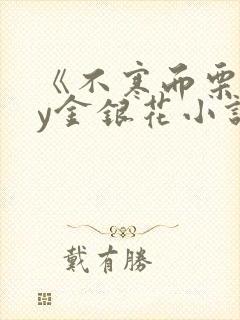 《不寒而栗
y金银花小説
戴有勝